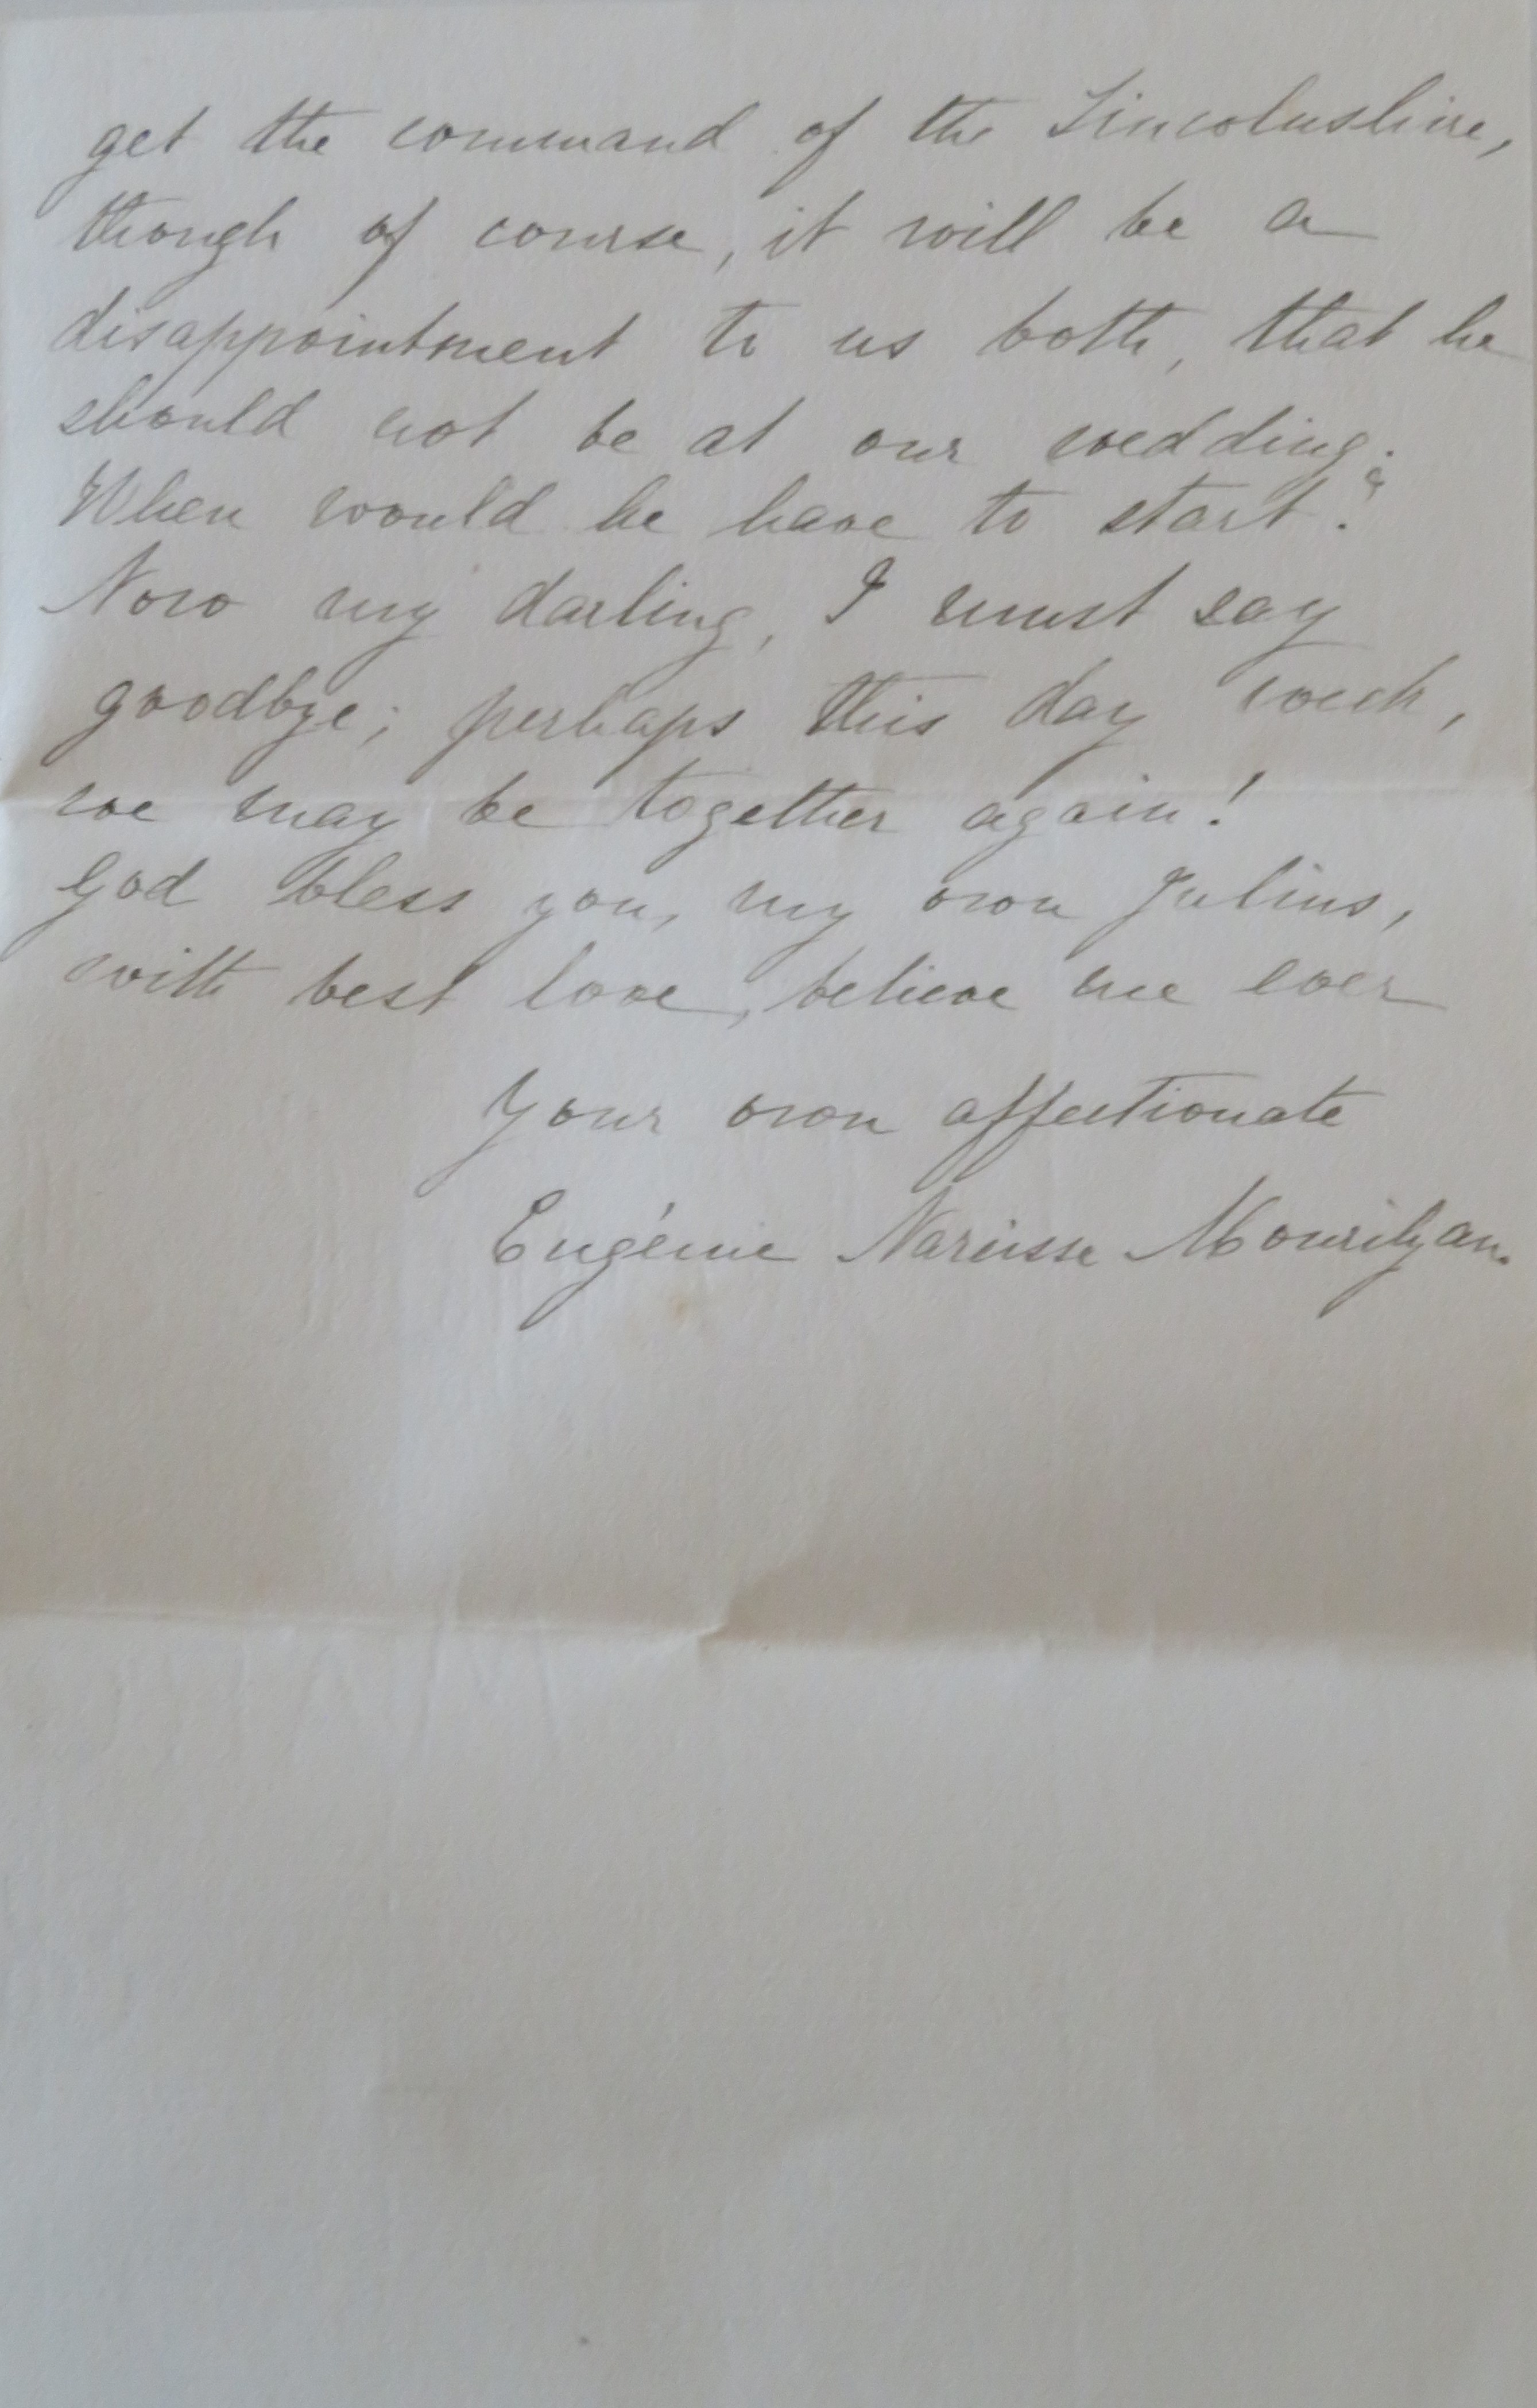 get the command of the Lincolnshire,
though of course, it will be a
disappointment to us both, that he
should not be at our wedding.
When would he have to start?
Now my darling, I must say
goodbye; perhaps this day week,
we may be together again!
God bless you, my own Julius,
with best love, believe me ever
Your own affectionate
Eugénie Narcisse Mourilyan.